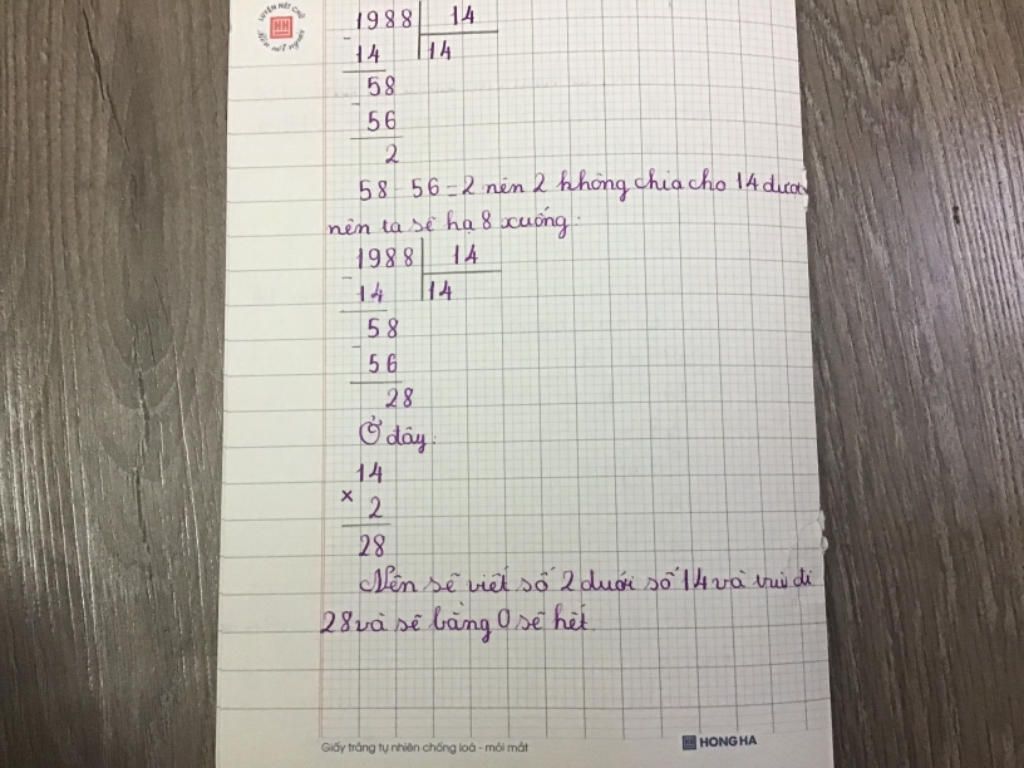 LUYỆN NÉT CHỮ
Rèn nết người
1988 14
- 14 14
58
- 56
2
58 - 56 = 2 nên 2 không chia cho 14 được
nên ta sẽ hạ 8 xuống.
1988 14
- 14 14
58
- 56
28
Ở đây:
14
× 2
28
Nên sẽ viết số 2 dưới số 14 và trừ đi
28 và sẽ bằng 0 sẽ hết
Giấy trắng tự nhiên chống loá - mỏi mắt
HH HONG HA